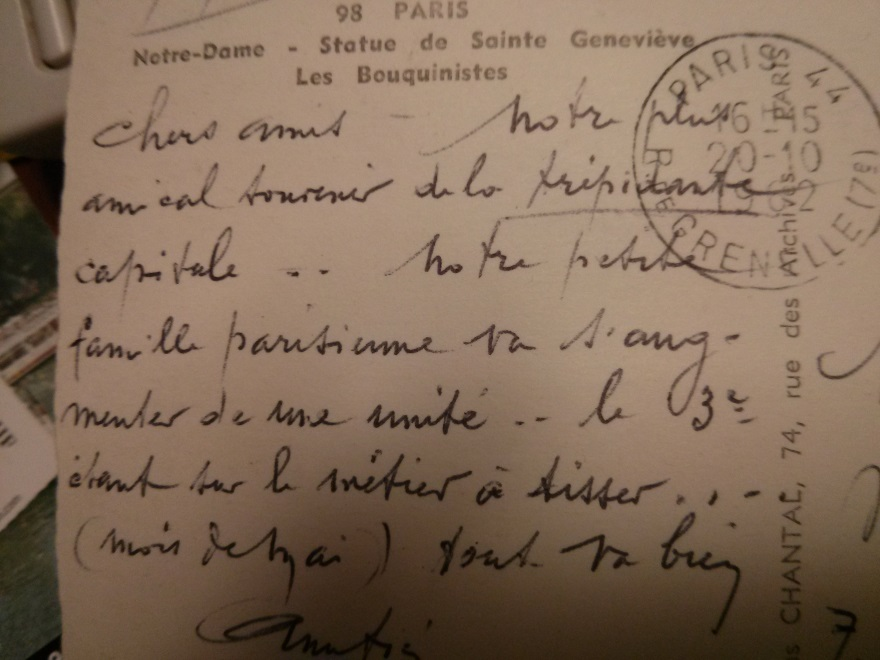 98 PARIS
Notre-Dame - Statue de Sainte Geneviève
Les Bouquinistes
Chers amis - Notre plus
amical souvenir de la trépidante
capitale .. Notre petite
famille parisienne va s'aug-
menter de une unité .. le 3e
étant sur le métier à tisser . . -
(mois de mai) tout va bien
PARIS 44
16 H 15
20-10
RUE DE GRENELLE (7e)
CHANTAL, 74, rue des Archives - PARIS